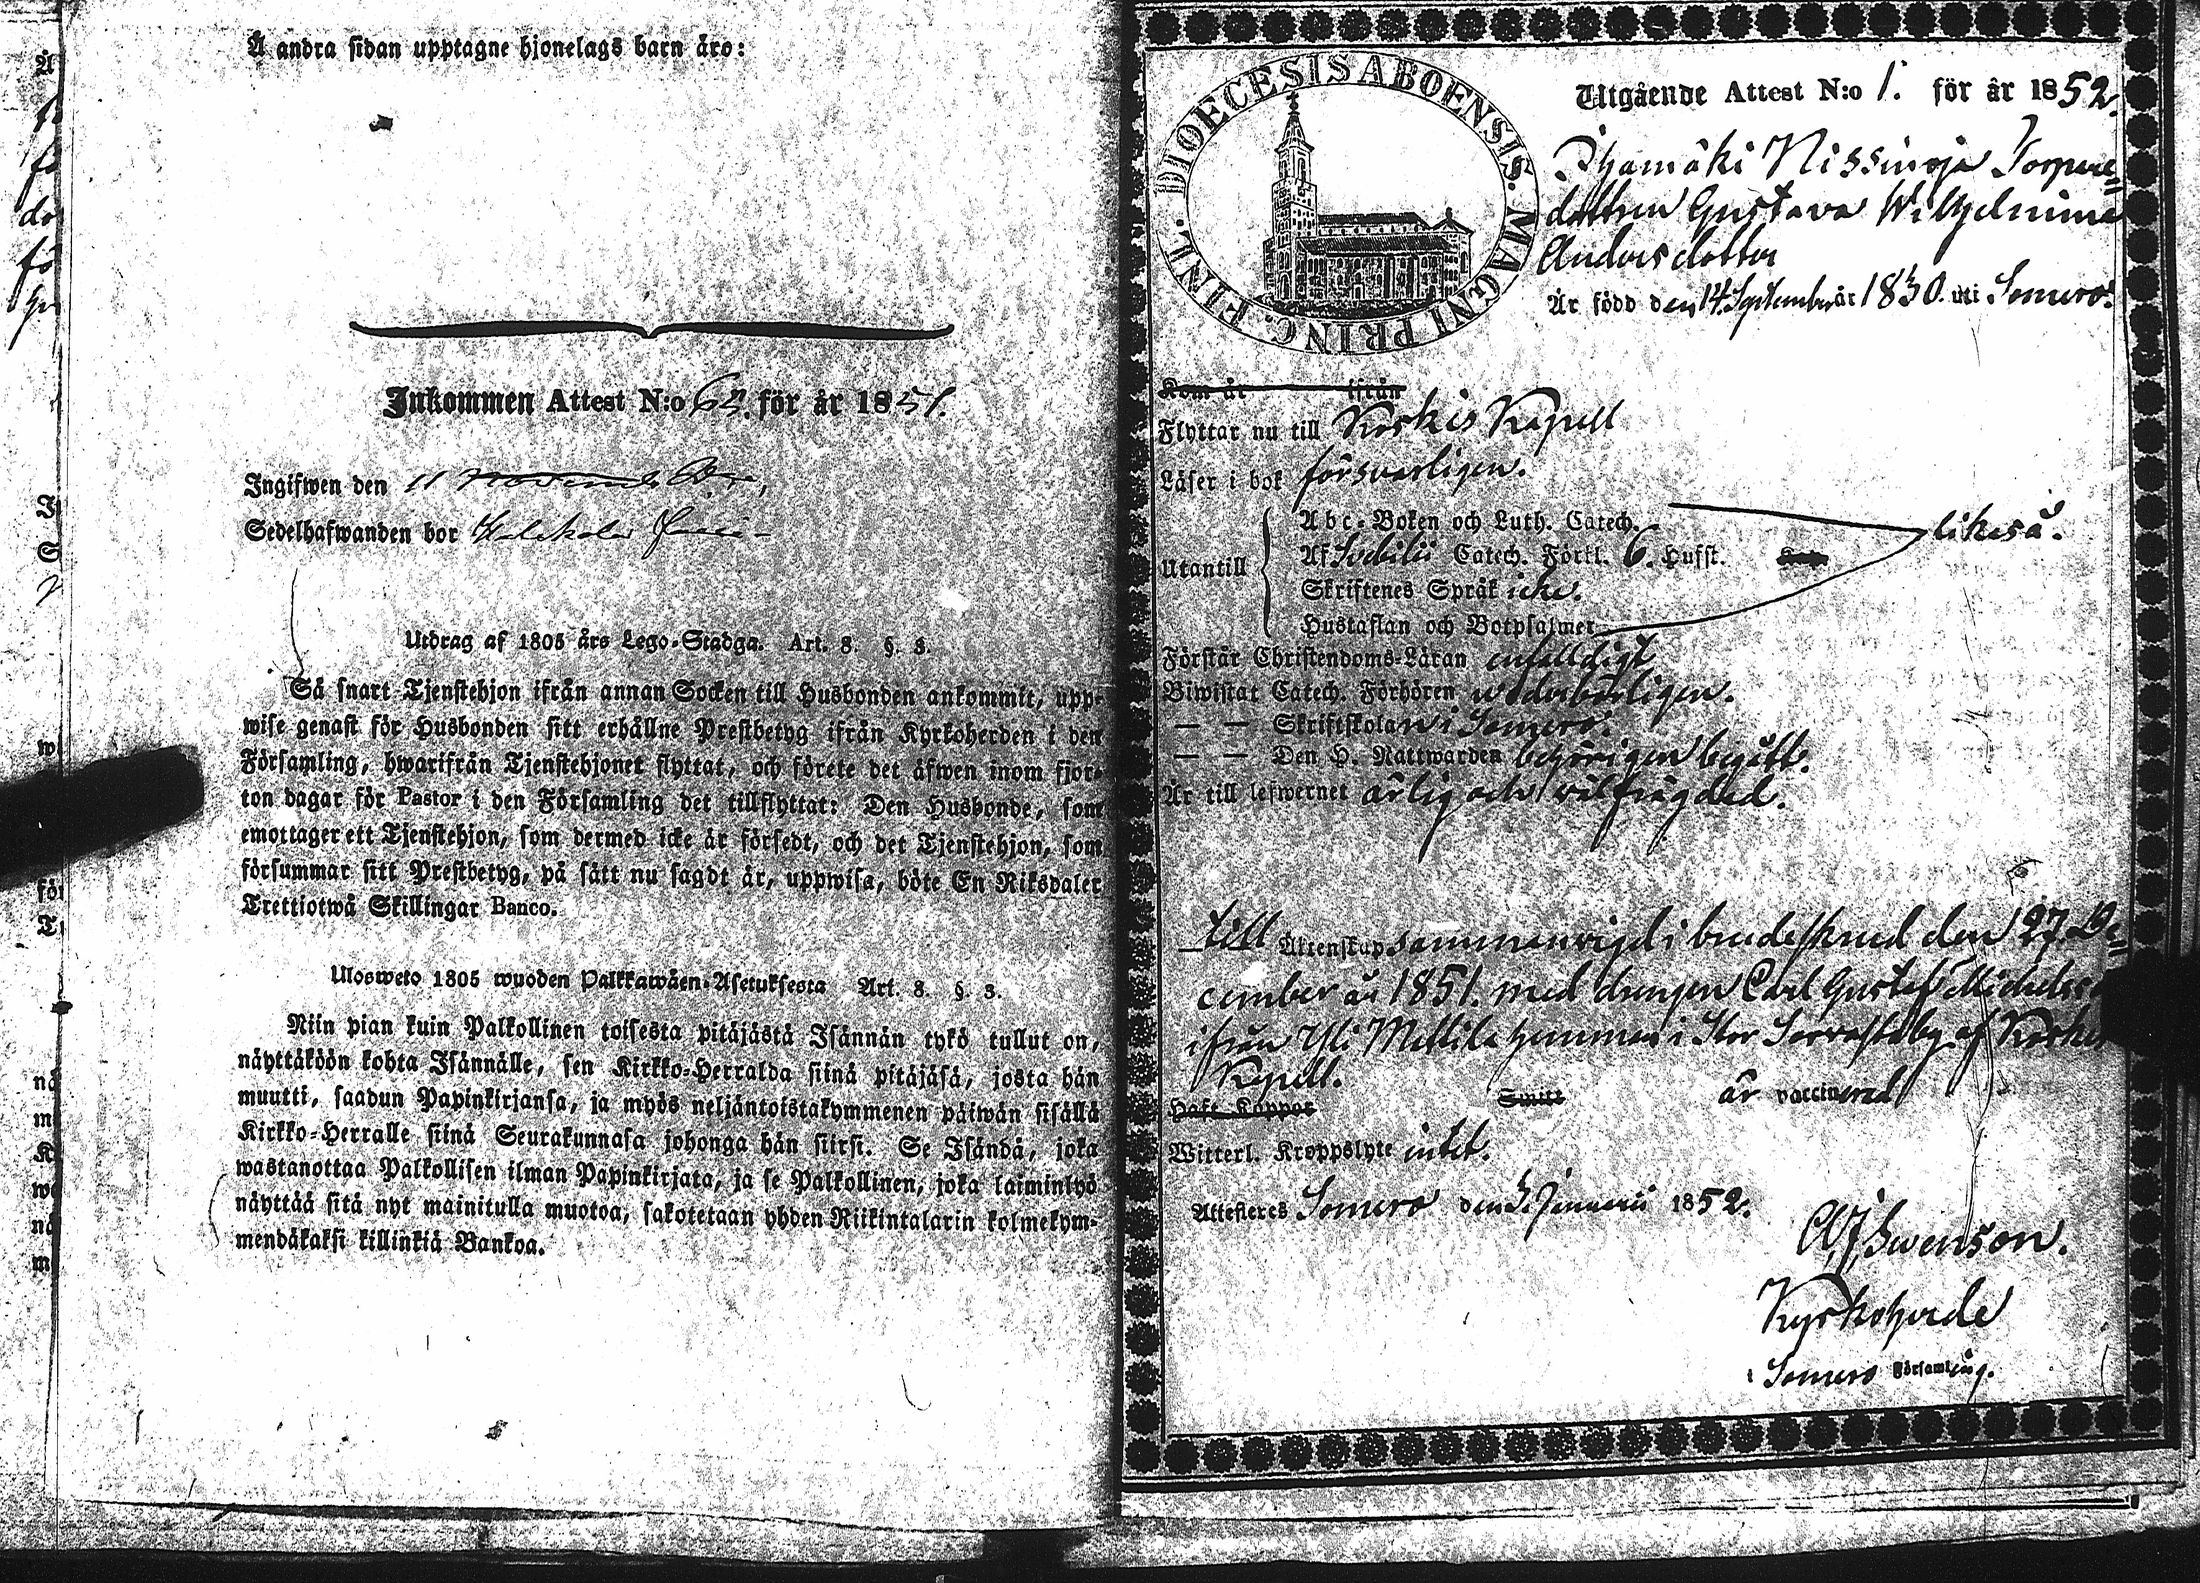 Å andra sidan upptagne hjonelags barn äro:
Inkommen Attest N:o 65. för år 1851.
Ingifwen den 11 November
Sedelhafwanden bor
Utdrag af 1805 års Lego-Stadga. Art. 8. §. 3.
Så snart Tjenstehjon ifrån annan Socken till Husbonden ankommit, upp-
wise genast för Husbonden sitt erhållne Prestbetyg ifrån Kyrkoherden i den
Församling, hwarifrån Tjenstehjonet flyttat, och förete det äfwen inom fjor-
ton dagar för Pastor i den Församling det tillflyttat: Den Husbonde, som
emottager ett Tjenstehjon, som dermed icke är försedt, och det Tjenstehjon, som
försummar sitt Prestbetyg, på sätt nu sagdt är, uppwisa, böte En Riksdaler
Trettiotwå Skillingar Banco.
Ulosweto 1805 wuoden Palkkawäen-Asetuksesta Art. 8. §. 3.
Niin pian kuin Palkollinen toisesta pitäjästä Isännän tykö tullut on,
näyttäköön kohta Isännälle, sen Kirkko-Herralda siinä pitäjäsä, josta hän
muutti, saadun Papinkirjansa, ja myös neljäntoistakymmenen päiwän sisällä
Kirkko-Herralle siinä Seurakunnasa johonga hän siirsi. Se Isändä, joka
wastanottaa Palkollisen ilman Papinkirjata, ja se Palkollinen, joka laiminlyö
näyttää sitä nyt mainitulla muotoa, sakotetaan yhden Riikintalarin kolmekym-
mendäkaksi killinkiä Bankoa.
DIOECESIS ABOENSIS. MAGNI PRINC. FINL.
Utgående Attest N:o 1. för år 1852.
Ihamäki Nissinoja Torpare=
dottren Gustava Wilhelmina
Andersdotter
Är född den 14 September år 1830. uti Somero.
Kom år ifrån
Flyttar nu till Koskis Kapell
Läser i bok försvarligen.
Abc-Boken och Luth. Catech.
likeså.
Utantill
Af Svebilii Catech. Förkl. 6. Hufst.
Skriftenes Språk icke.
Hustaflan och Botpsalmer
Förstår Christendoms-Läran enfalldigt
Biwistat Catech. Förhören wederbörligen.
— — Skriftskolan i Somero.
— — Den H. Nattwarden behörigen begått.
Är till lefwernet ärlig och wälfrägdad.
till Äktenskap sammanvigd i brudeskrud den 27. De=
cember år 1851. med drengen Carl Gustaf Michelss
ifrån Yli Mettila hemman i Stor Sorvasto by af Koskis
Kapell.
Haft Koppor Smitt är vaccinerad
Witterl. Kroppslyte intet.
Attesteres Somero den 5. Januarii 1852.
Swenson.
Kyrkoherde
i Somero Församling.